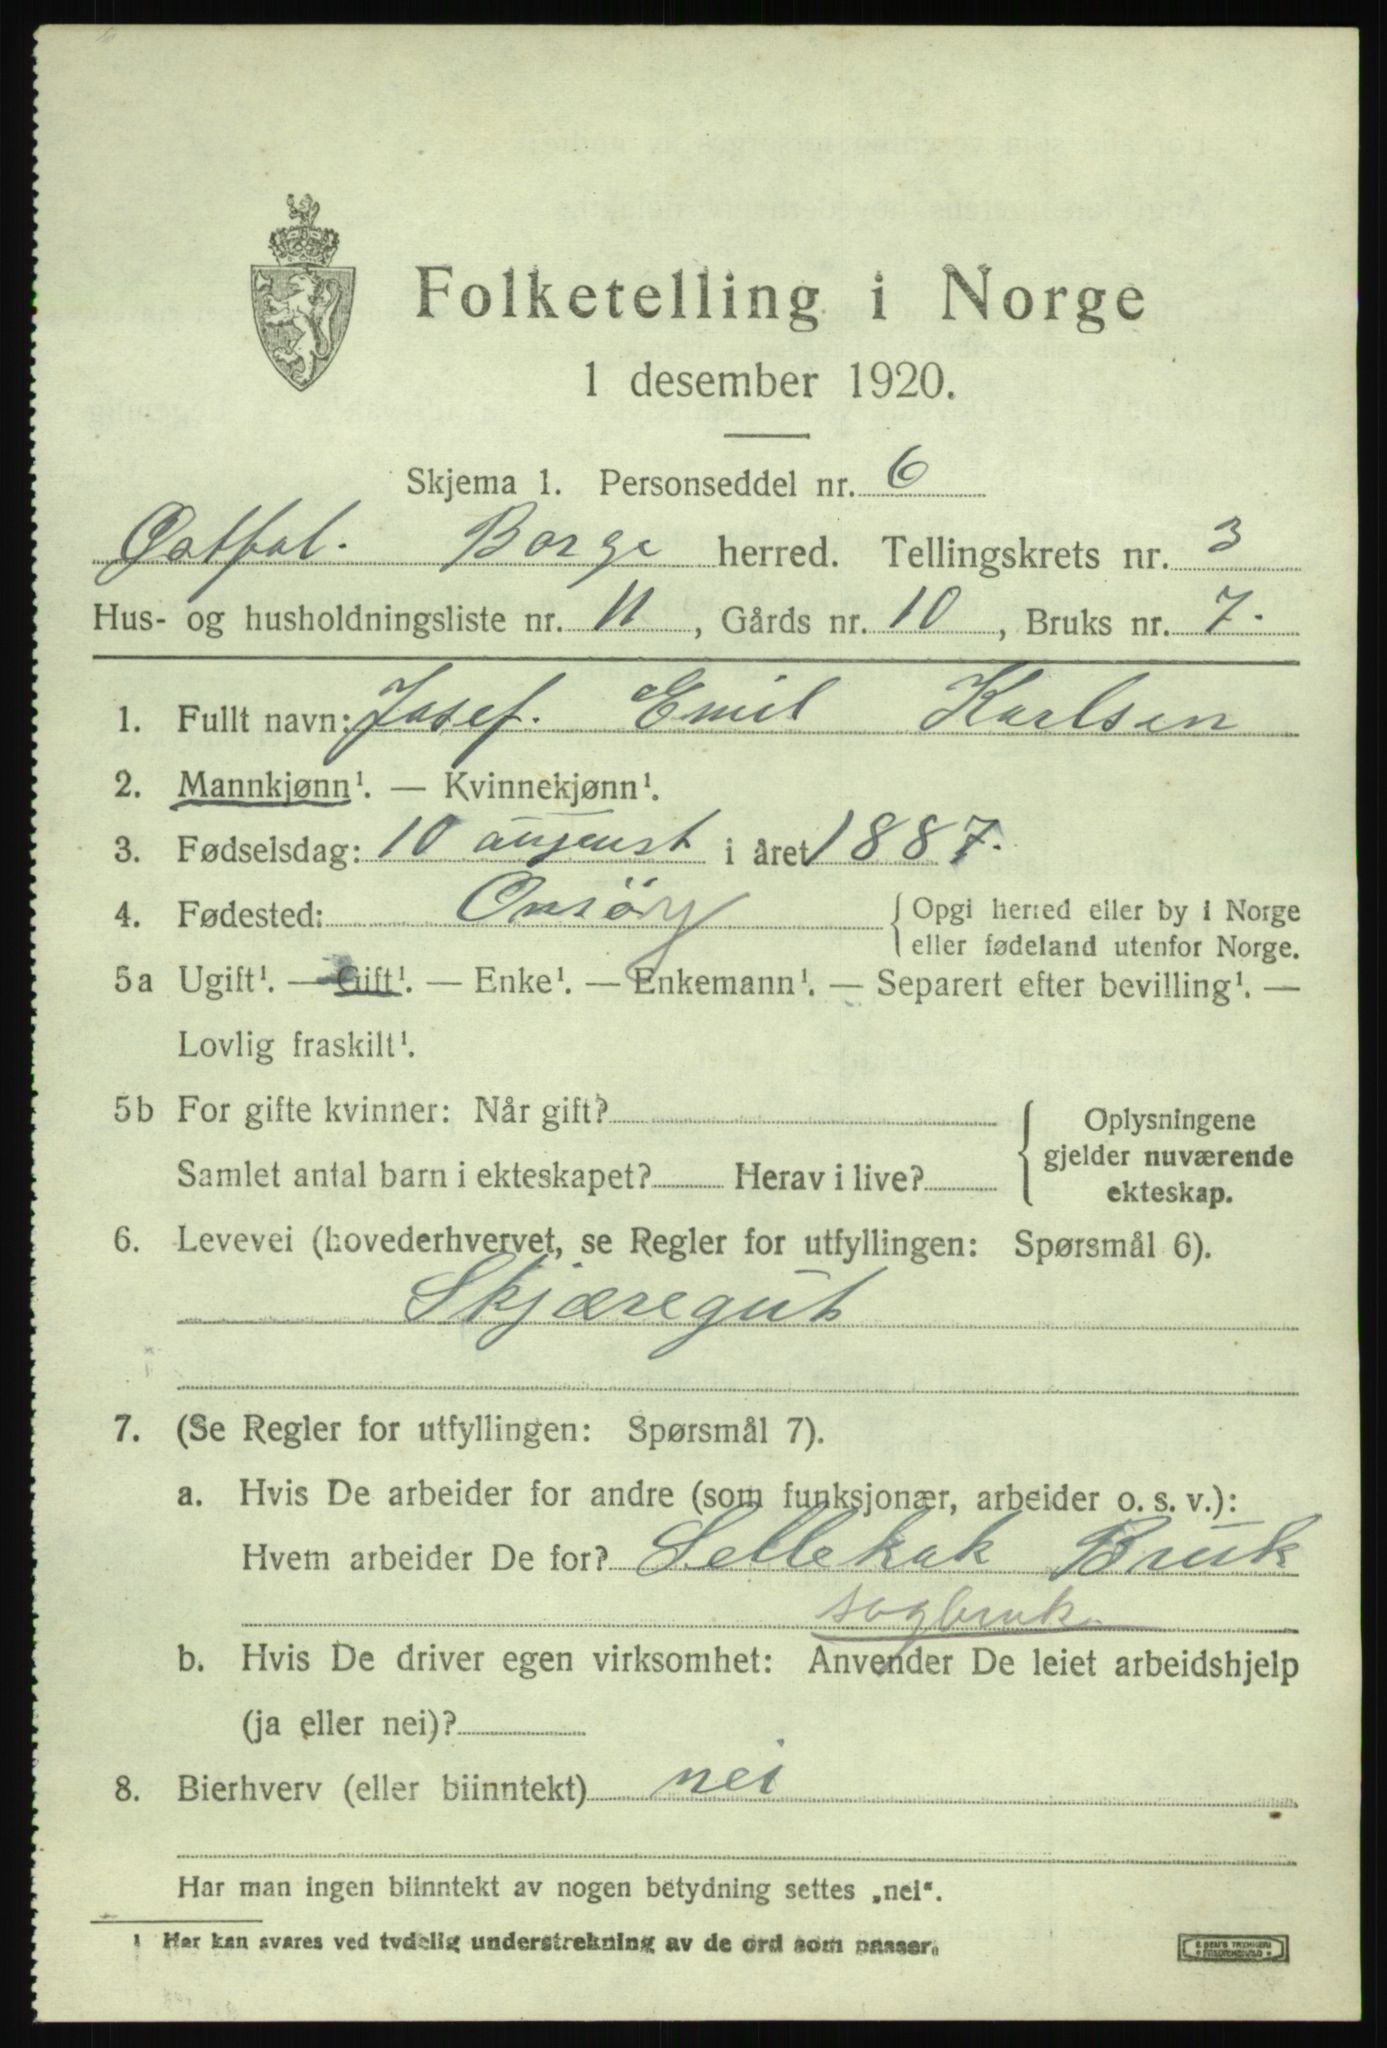 Folketelling i Norge
1 desember 1920.
Skjema 1. Personseddel nr. 6
Østfol. Borge herred. Tellingskrets nr. 3
Hus- og husholdningsliste nr. 11, Gårds nr. 10, Bruks nr. 7.
1. Fullt navn: Josef. Emil Karlsen
2. Mannkjønn¹. — Kvinnekjønn¹.
3. Fødselsdag: 10 august i året 1887.
4. Fødested: Onsöy { Opgi herred eller by i Norge
eller fødeland utenfor Norge.
5a Ugift¹. — Gift¹. — Enke¹. — Enkemann¹. — Separert efter bevilling¹. —
Lovlig fraskilt¹.
5b For gifte kvinner: Når gift? { Oplysningene
gjelder nuværende
Samlet antal barn i ekteskapet? Herav i live? ekteskap.
6. Levevei (hovederhvervet, se Regler for utfyllingen: Spørsmål 6).
Skjæregut
7. (Se Regler for utfyllingen: Spørsmål 7).
a. Hvis De arbeider for andre (som funksjonær, arbeider o. s. v.):
Hvem arbeider De for? Sellekak Bruk
sagbruk
b. Hvis De driver egen virksomhet: Anvender De leiet arbeidshjelp
(ja eller nei)?
8. Bierhverv (eller biinntekt) nei
Har man ingen biinntekt av nogen betydning settes „nei“.
1 Her kan svares ved tydelig understrekning av de ord som passer.